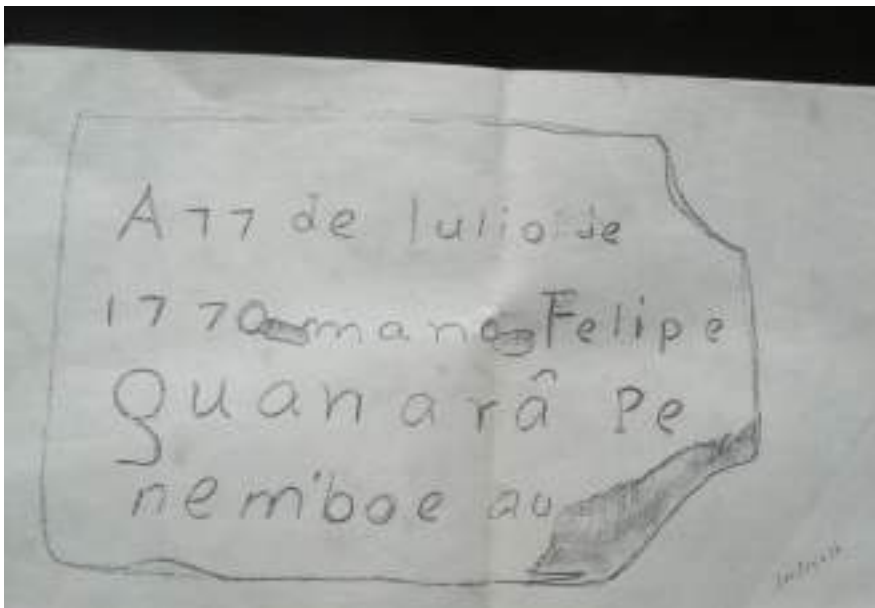 A 77 de Iulio de
1770 mano Felipe
guanarâ Pe
nem'boe au